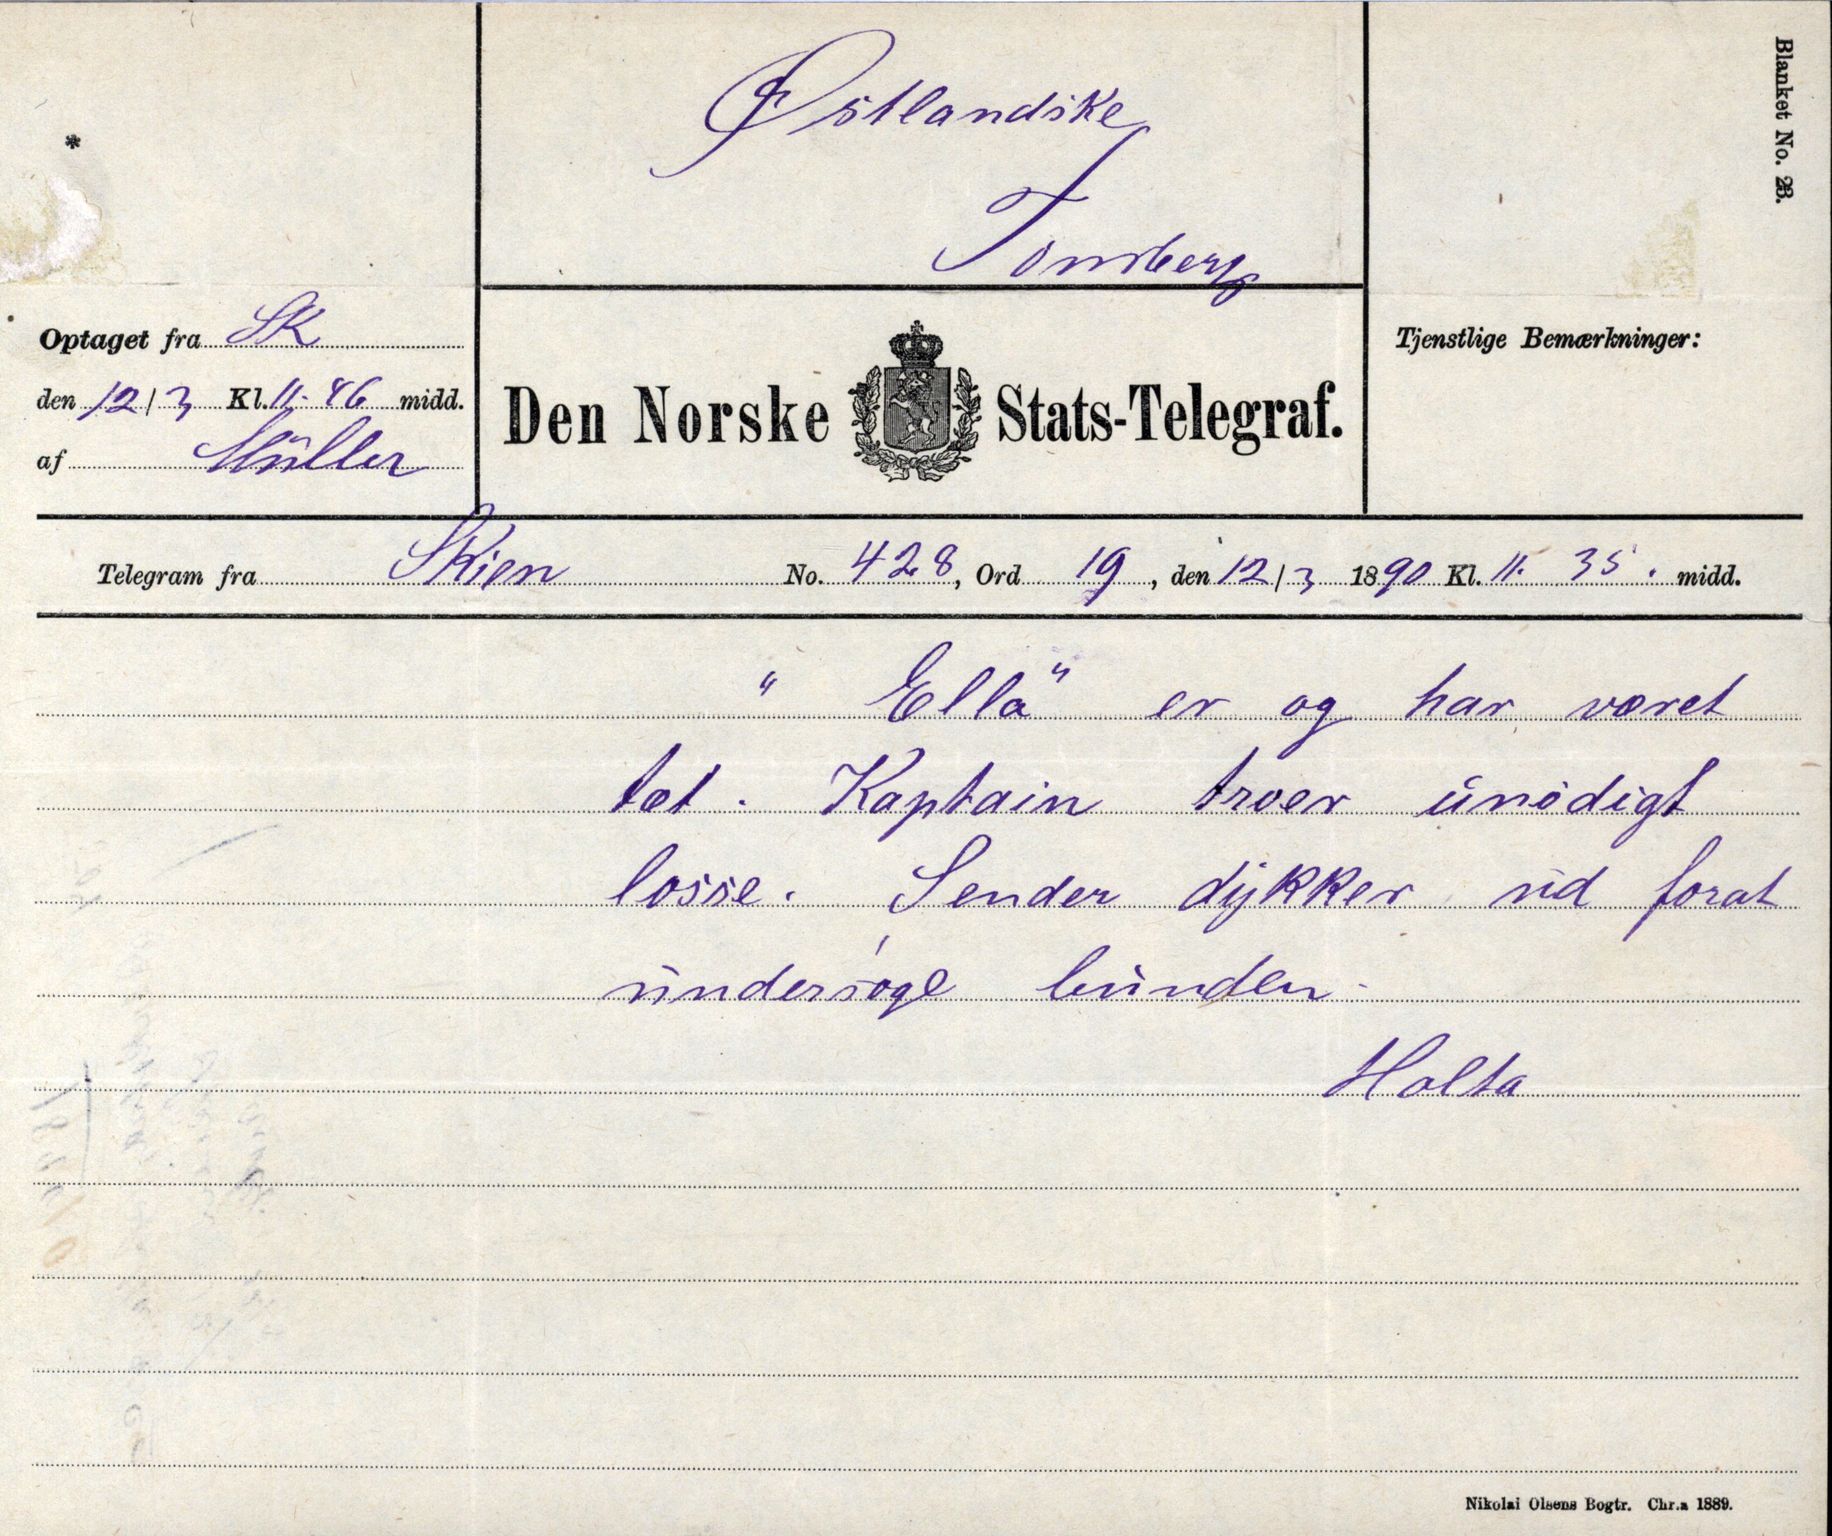 Blanket No. 23.
Østlandske
Tønsberg
*
Optaget fra SK
den 12/3 Kl. 11.46 midd.
af Müller
Den Norske Stats-Telegraf.
Tjenstlige Bemærkninger:
Telegram fra Skien No. 428, Ord 19, den 12/3 1890 Kl. 11.35. midd.
"Ella" er og har været
tæt. Kaptain troer unödigt
losse. Sender dykker ud forat
undersøge bunden.
Holta
Nikolai Olsens Bogtr. Chr.a 1889.